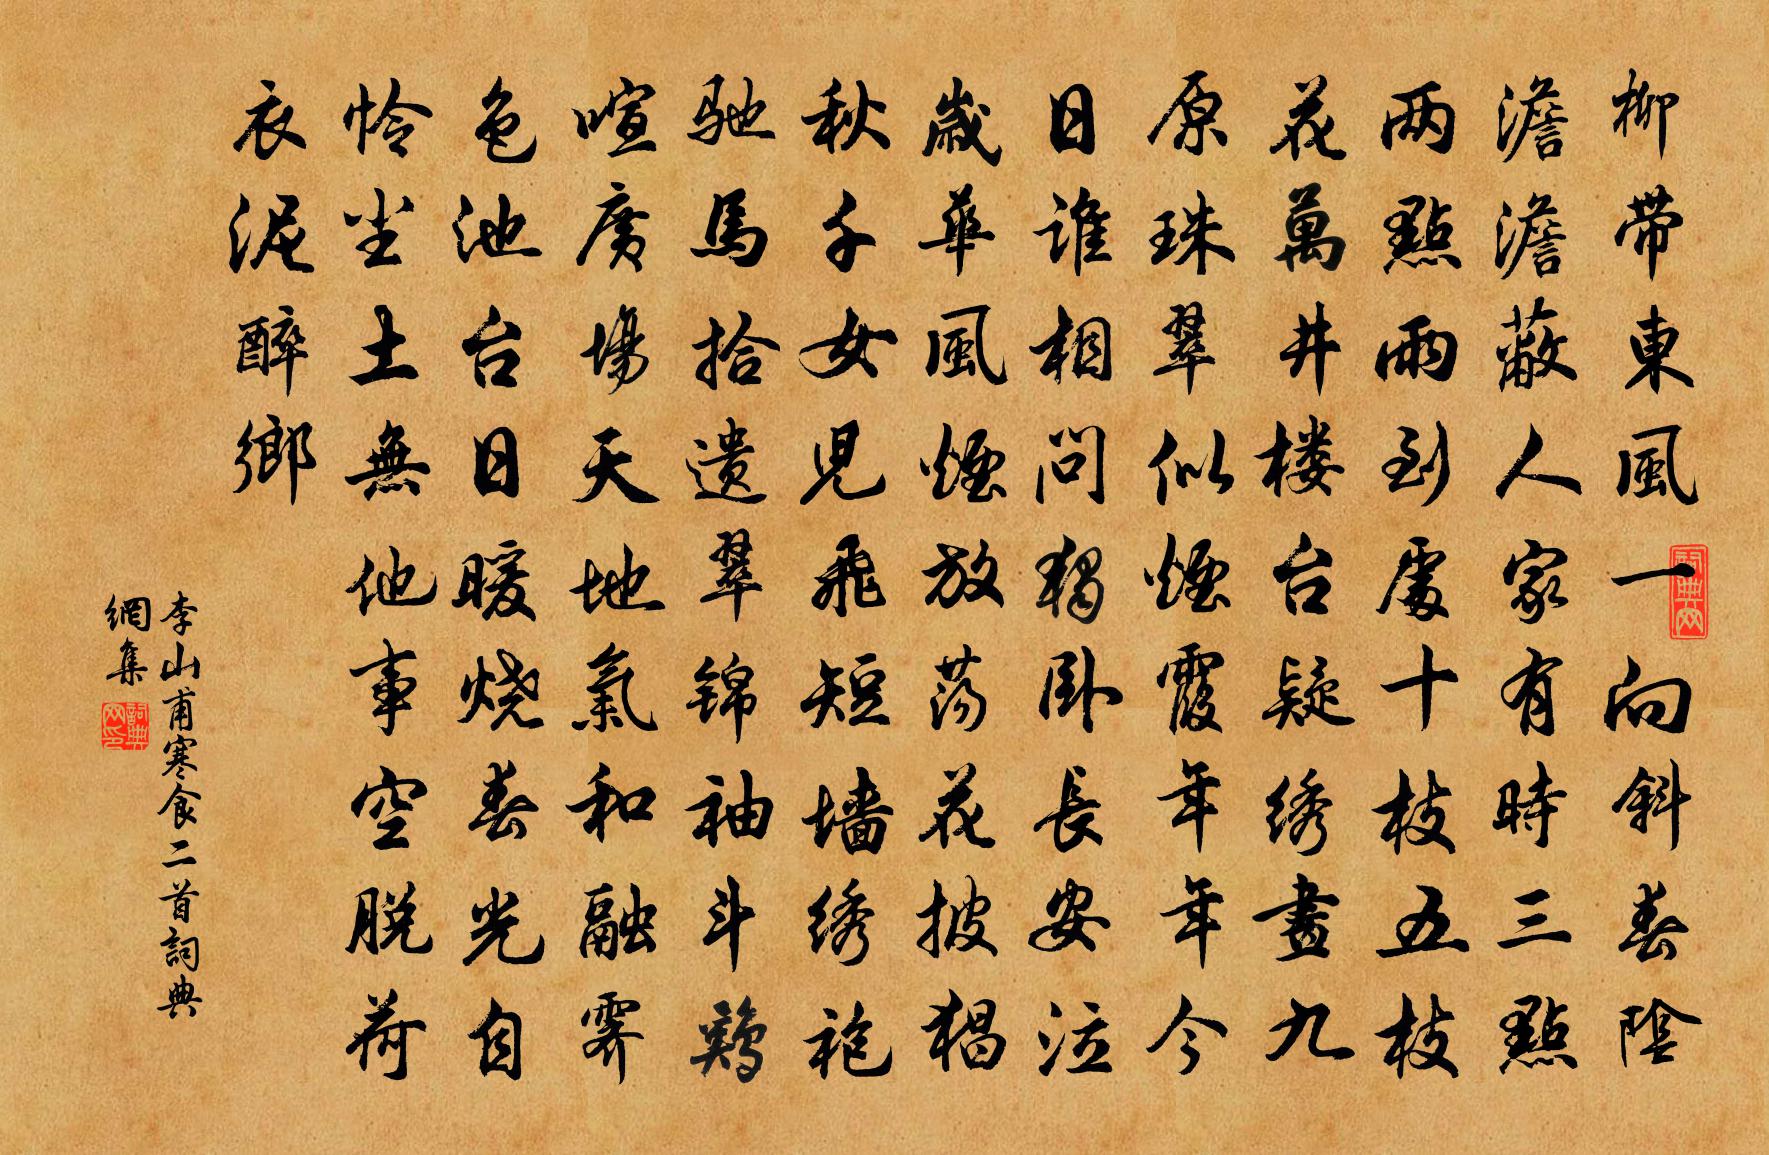 柳带東風一向斜春陰
澹澹蔽人家有時三點
两點雨到處十枝五枝
花萬井楼台疑绣畫九
原珠翠似煙霞年年今
日谁相問獨卧長安泣
歲華風煙放荡花披猖
秋千女児飛短墙绣袍
驰馬拾遗翠锦袖斗鷄
喧廣場天地氣和融霽
色池台日暖烧春光自
怜尘土無他事空脱荷
衣泥醉鄉
李山甫寒食二首詞典
網集
詞典网
詞典网印